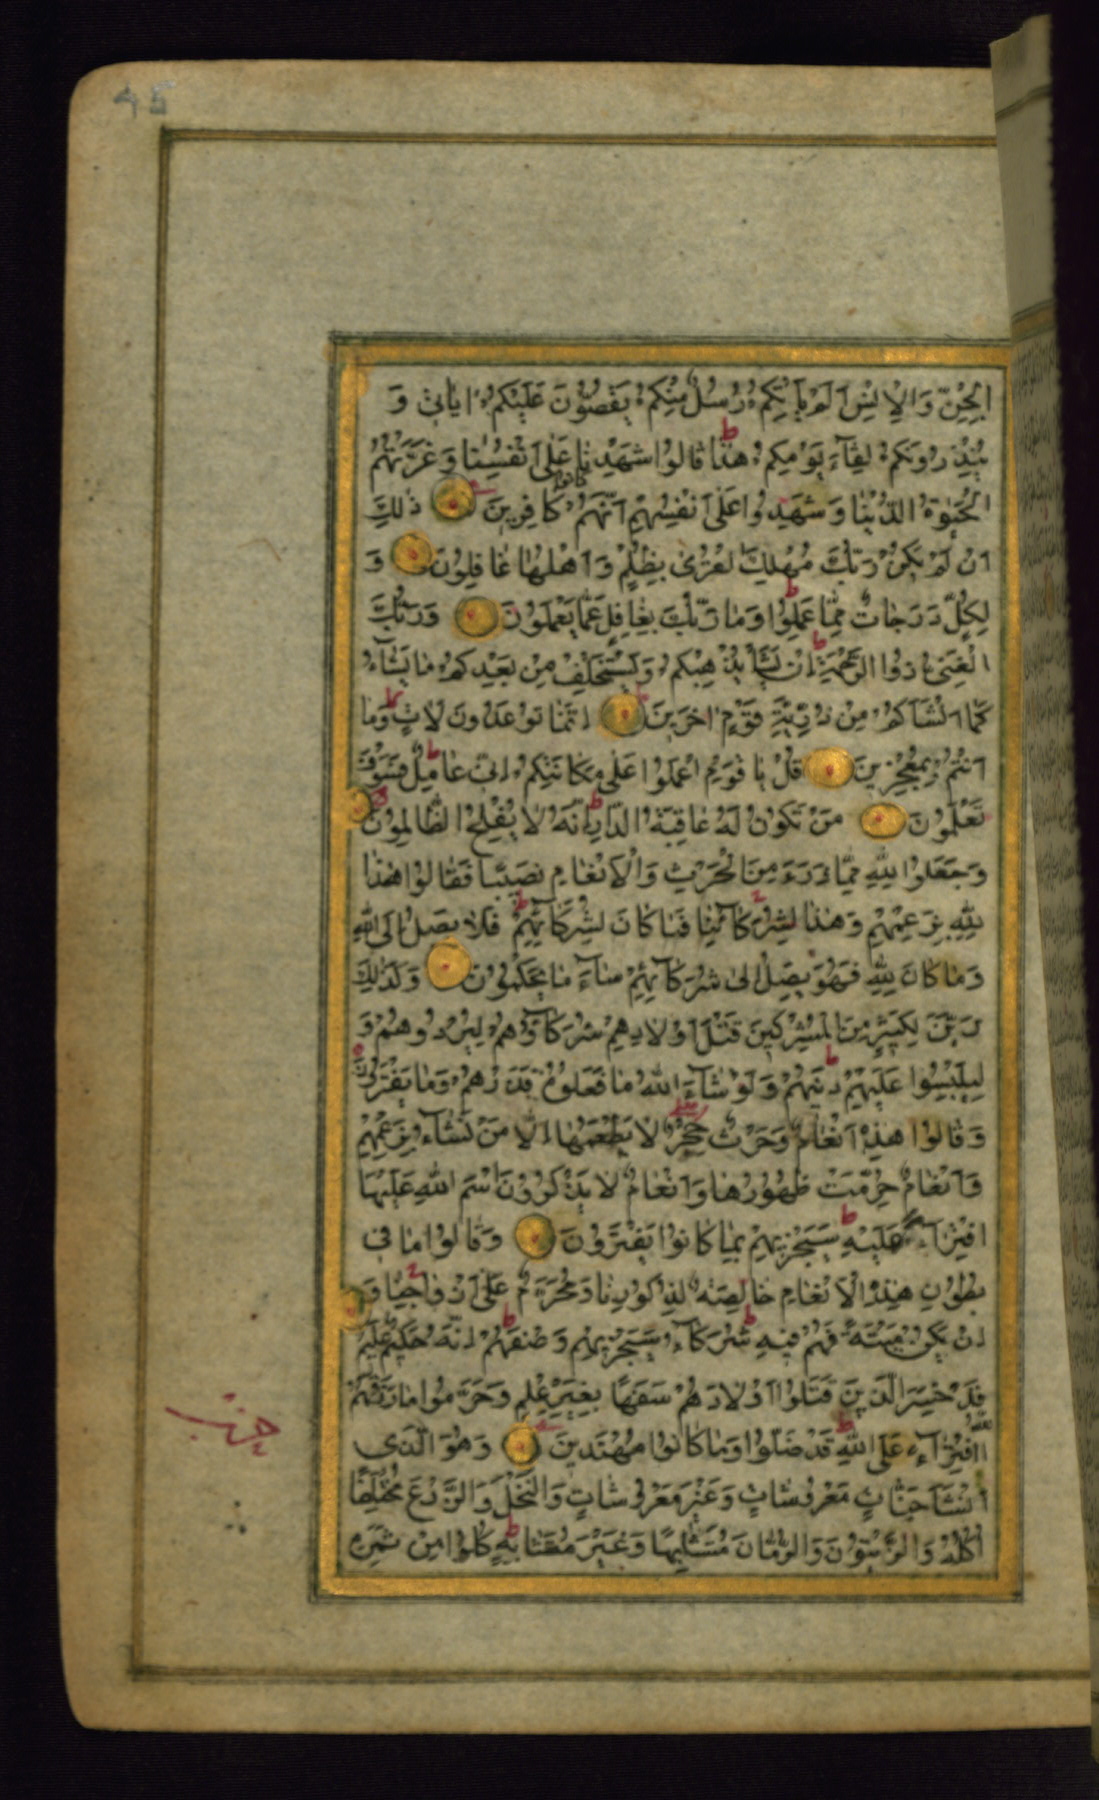 45
الْجِنِّ وَالْاِنْسِ اَلَمْ يَاْتِكُمْ رُسُلٌ مِنْكُمْ يَقُصُّونَ عَلَيْكُمْ اٰيَاتِي وَ
يُنْذِرُونَكُمْ لِقَآءَ يَوْمِكُمْ هٰذَا قَالُوا شَهِدْنَا عَلٰى اَنْفُسِنَا وَغَرَّتْهُمُ
الْحَيٰوةُ الدُّنْيَا وَشَهِدُوا عَلٰى اَنْفُسِهِمْ اَنَّهُمْ كَانُوا كَافِرِينَ ذٰلِكَ
اَنْ لَمْ يَكُنْ رَبُّكَ مُهْلِكَ الْقُرٰى بِظُلْمٍ وَاَهْلُهَا غَافِلُونَ وَ
لِكُلٍّ دَرَجَاتٌ مِمَّا عَمِلُوا وَمَا رَبُّكَ بِغَافِلٍ عَمَّا يَعْمَلُونَ وَرَبُّكَ
الْغَنِىُّ ذُوا الرَّحْمَةِ اِنْ يَشَأْ يُذْهِبْكُمْ وَيَسْتَخْلِفْ مِنْ بَعْدِكُمْ مَا يَشَآءُ
كَمَا اَنْشَاَكُمْ مِنْ ذُرِّيَّةِ قَوْمٍ اٰخَرِينَ اِنَّمَا تُوعَدُونَ لَاٰتٍ وَمَا
اَنْتُمْ بِمُعْجِزِينَ قُلْ يَا قَوْمِ اعْمَلُوا عَلٰى مَكَانَتِكُمْ اِنّى عَامِلٌ فَسَوْفَ
تَعْلَمُونَ مَنْ تَكُونُ لَهُ عَاقِبَةُ الدَّارِ اِنَّهُ لَا يُفْلِحُ الظَّالِمُونَ
وَجَعَلُوا لِلّٰهِ مِمَّا ذَرَءَ مِنَ الْحَرْثِ وَالْاَنْعَامِ نَصِيبًا فَقَالُوا هٰذَا
لِلّٰهِ بِزَعْمِهِمْ وَهٰذَا لِشُرَكَآئِنَا فَمَا كَانَ لِشُرَكَآئِهِمْ فَلَا يَصِلُ اِلَى اللّٰهِ
وَمَا كَانَ لِلّٰهِ فَهُوَ يَصِلُ اِلٰى شُرَكَآئِهِمْ سَآءَ مَا يَحْكُمُونَ وَكَذٰلِكَ
زَيَّنَ لِكَثِيرٍ مِنَ الْمُشْرِكِينَ قَتْلَ اَوْلَادِهِمْ شُرَكَآؤُهُمْ لِيُرْدُوهُمْ وَ
لِيَلْبِسُوا عَلَيْهِمْ دِينَهُمْ وَلَوْ شَآءَ اللّٰهُ مَا فَعَلُوهُ فَذَرْهُمْ وَمَا يَفْتَرُونَ
وَقَالُوا هٰذِهِ اَنْعَامٌ وَحَرْثٌ حِجْرٌ لَا يَطْعَمُهَا اِلَّا مَنْ نَشَآءُ بِزَعْمِهِمْ
وَاَنْعَامٌ حُرِّمَتْ ظُهُورُهَا وَاَنْعَامٌ لَا يَذْكُرُونَ اسْمَ اللّٰهِ عَلَيْهَا
افْتِرَآءً عَلَيْهِ سَيَجْزِيهِمْ بِمَا كَانُوا يَفْتَرُونَ وَقَالُوا مَا فِى
بُطُونِ هٰذِهِ الْاَنْعَامِ خَالِصَةٌ لِذُكُورِنَا وَمُحَرَّمٌ عَلٰى اَزْوَاجِنَا وَ
اِنْ يَكُنْ مَيْتَةً فَهُمْ فِيهِ شُرَكَآءُ سَيَجْزِيهِمْ وَصْفَهُمْ اِنَّهُ حَكِيمٌ عَلِيمٌ
قَدْ خَسِرَ الَّذِينَ قَتَلُوا اَوْلَادَهُمْ سَفَهًا بِغَيْرِ عِلْمٍ وَحَرَّمُوا مَا رَزَقَهُمُ
اللّٰهُ افْتِرَآءً عَلَى اللّٰهِ قَدْ ضَلُّوا وَمَا كَانُوا مُهْتَدِينَ وَهُوَ الَّذِى
اَنْشَاَ جَنَّاتٍ مَعْرُوشَاتٍ وَغَيْرَ مَعْرُوشَاتٍ وَالنَّخْلَ وَالزَّرْعَ مُخْتَلِفًا
اُكُلُهُ وَالزَّيْتُونَ وَالرُّمَّانَ مُتَشَابِهًا وَغَيْرَ مُتَشَابِهٍ كُلُوا مِنْ ثَمَرِهِ
حزب